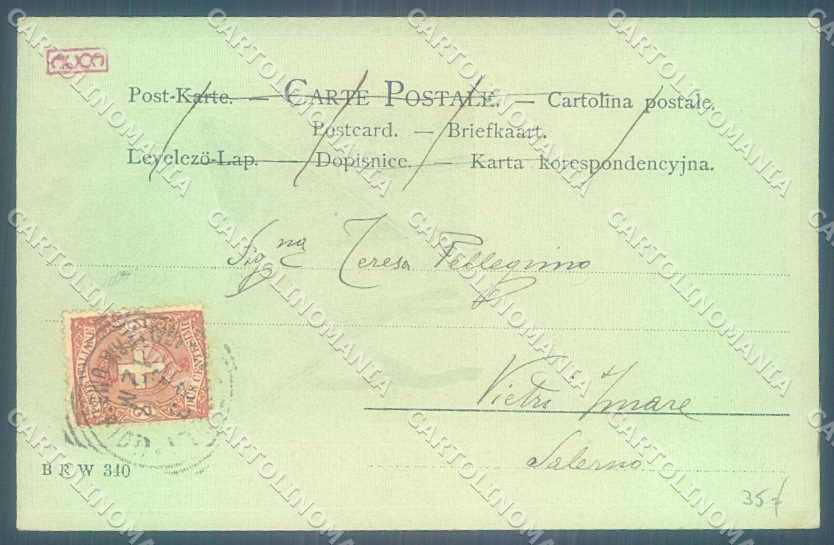 Post-Karte. — CARTE POSTALE. — Cartolina postale.
Postcard. — Briefkaart.
Levelező-Lap. — Dopisnice. — Karta korespondencyjna.
Sigg na Teresa Pellegrino
Vietri s/mare
Salerno
B K W 310
35
CARTOLINOMANIA